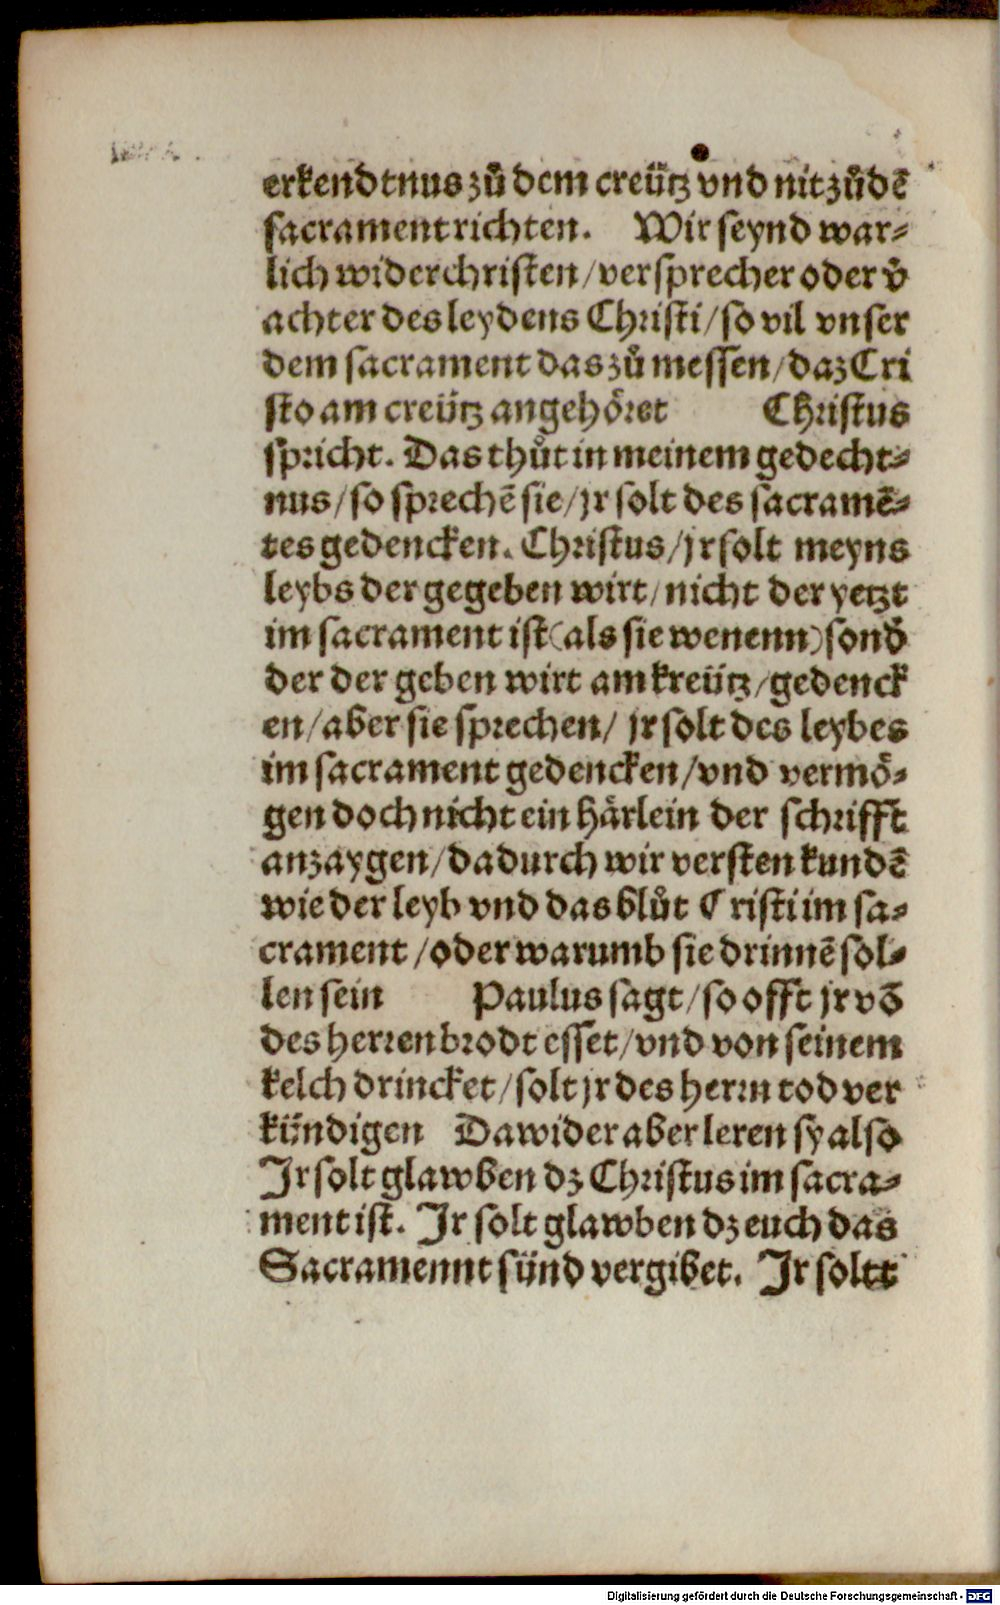 erkendtnus zů dem creütz vnd nit zů dē
sacrament richten. Wir seynd war⸗
lich widerchristen/versprecher oder v̄
achter des leydens Christi/so vil vnser
dem sacrament das zů messen/daz Cri
sto am creütz angehöret Christus
spricht. Das thůt in meinem gedecht⸗
nus/so sprechē sie/jr solt des sacramē⸗
tes gedencken. Christus/jr solt meyns
leybs der gegeben wirt/nicht der yetzt
im sacrament ist(als sie wenenn)sond̄
der der geben wirt am kreütz/gedenck
en/aber sie sprechen/ jr solt des leybes
im sacrament gedencken/vnd vermö⸗
gen doch nicht ein härlein der schrifft
anzaygen/dadurch wir versten kundē
wie der leyb vnd das blůt Cristi im sa⸗
crament /oder warumb sie drinnē sol⸗
len sein Paulus sagt/so offt jr vō
des herren brodt esset/vnd von seinem
kelch drincket/solt jr des herrn tod ver
kündigen Dawider aber leren sy also
Jr solt glawben dz Christus im sacra⸗
ment ist. Jr solt glawben dz euch das
Sacramennt sünd vergibet. Jr soltt
Digitalisierung gefördert durch die Deutsche Forschungsgemeinschaft - DFG